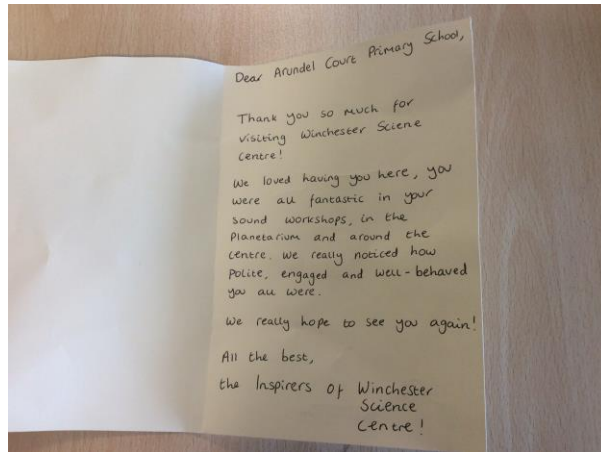 Dear Arundel Court Primary School,
Thank you so much for
visiting Winchester Sciene
Centre!
We loved having you here, you
were all fantastic in your
sound workshops, in the
Planetarium and around the
centre. We really noticed how
Polite, engaged and well-behaved
you all were.
We really hope to see you again!
All the best,
the Inspirers of Winchester
Science
Centre!